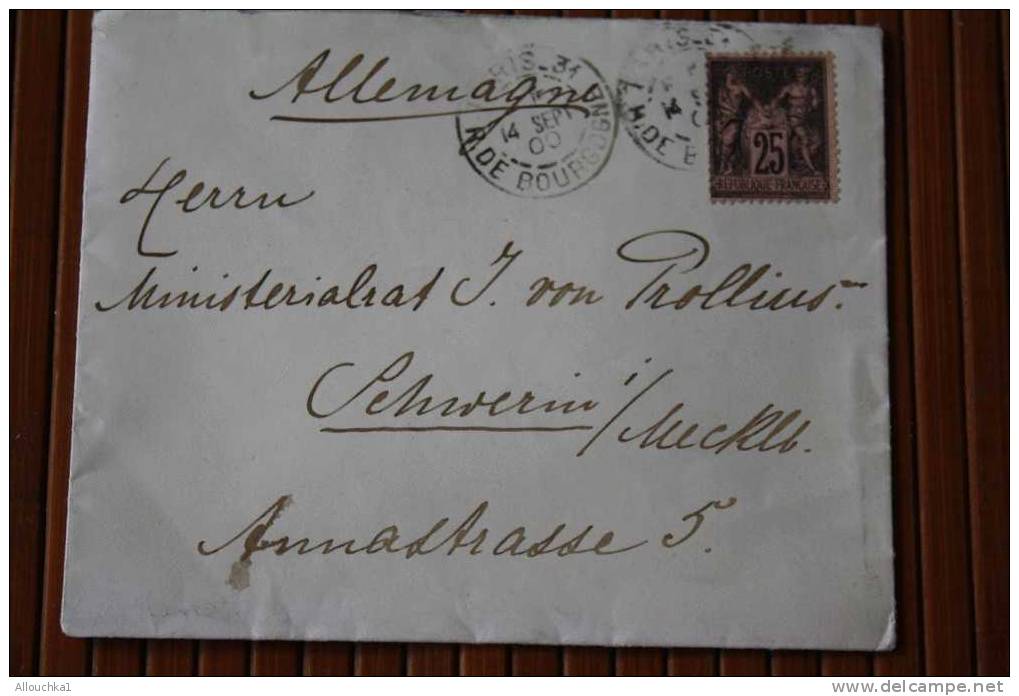 Allemagne
PARIS_31
14 SEPT
00
R. DE BOURGOGNE
POSTES
25
REPUBLIQUE FRANÇAISE
Herrn
Ministerialrat J. von Prollius
Schwerin i/Mecklb.
Annastrasse 5.
Allouchka1
www.delcampe.net